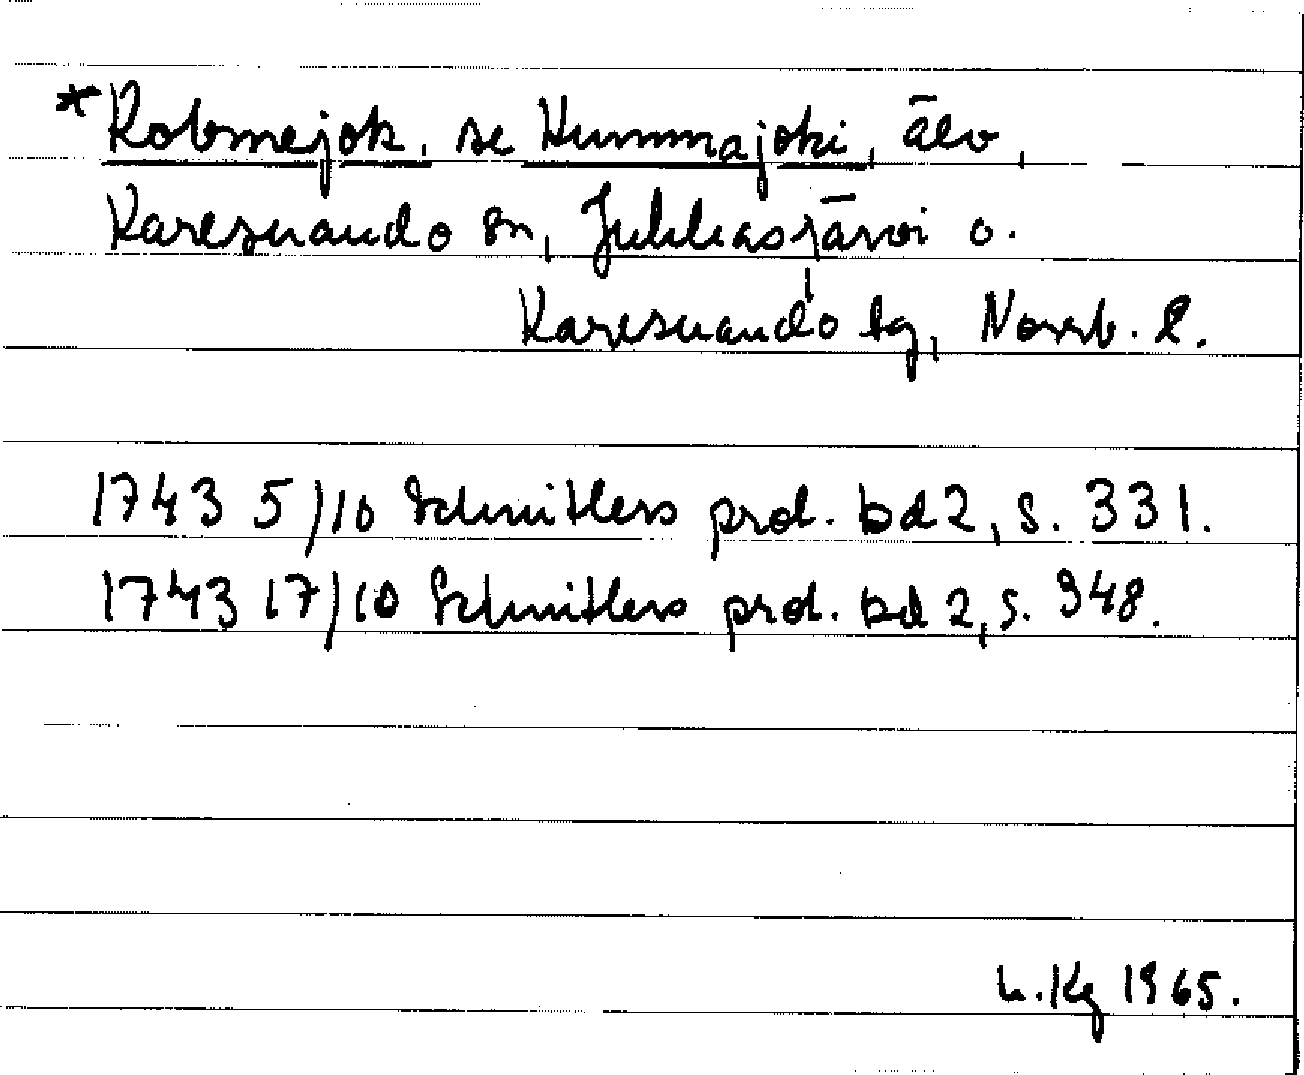 *Kobmejok, se Kummajoki, älv,
Karesuando sn, Jukkasjärvi o.
Karesuando tg, Norrb. l.
1743 5/10 Schnitlers prot. bd 2, s. 331.
1743 17/10 Schnitlers prot. bd 2, s. 348.
L.Kg 1965.